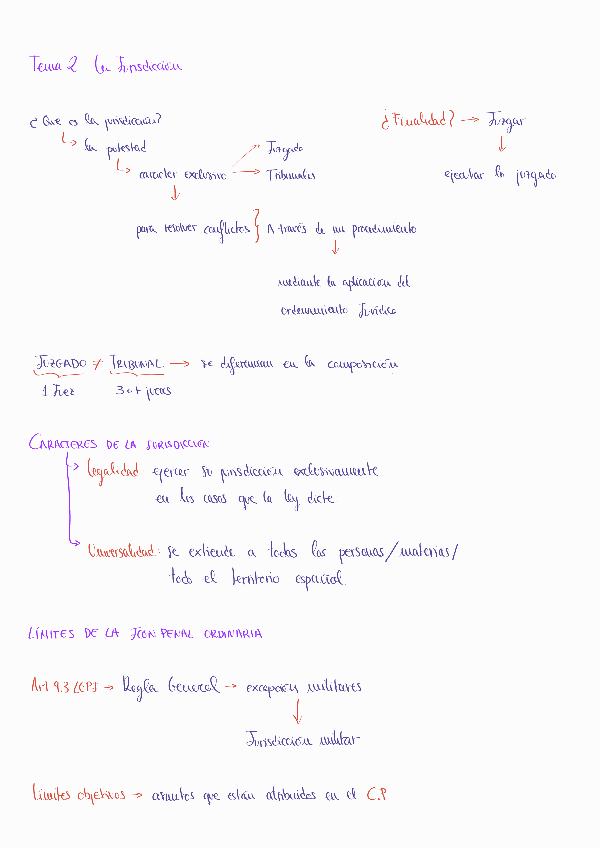 Tema 2 La Jurisdicción
¿ Que es la jurisdicción?
¿Finalidad? → Juzgar
↳ la potestad
Juzgado
↳ caracter exclusivo → Tribunales
ejecutar lo juzgado
para resolver conflictos } A través de un procedimiento
mediante la aplicacion del
ordenamiento Jurídico
JUZGADO ≠ TRIBUNAL → se diferencian en la composición
1 Juez 3 o + jueces
CARACTERES DE LA JURISDICCIÓN
Legalidad ejercer su jurisdicción exclusivamente
en los casos que la ley dicte
Universalidad: Se extiende a todas las personas/materias/
todo el territorio español.
LÍMITES DE LA JCON PENAL ORDINARIA
Art 9.3 LOPJ → Regla General → excepcion militares
Jurisdicción militar
Límites objetivos → asuntos que estan atribuidos en el C.P